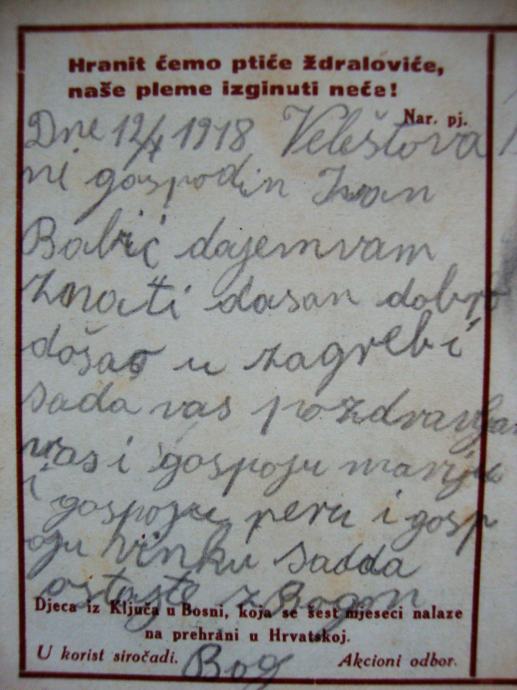 Hranit ćemo ptiće ždraloviće,
naše pleme izginuti neće!
Nar. pj.
Dne 12/X 1918 Veleštova
ni gospodin Ivan
Babić dajem vam
znati dasan dobro
došao u zagreb i
sada vas pozdravljam
vas i gospoju mariju
i gospoju peru i gosp
oju vinku sadda
ostajte zBogom
Djeca iz Ključa u Bosni, koja se šest mjeseci nalaze
na prehrani u Hrvatskoj.
U korist siročadi. Bog Akcioni odbor.